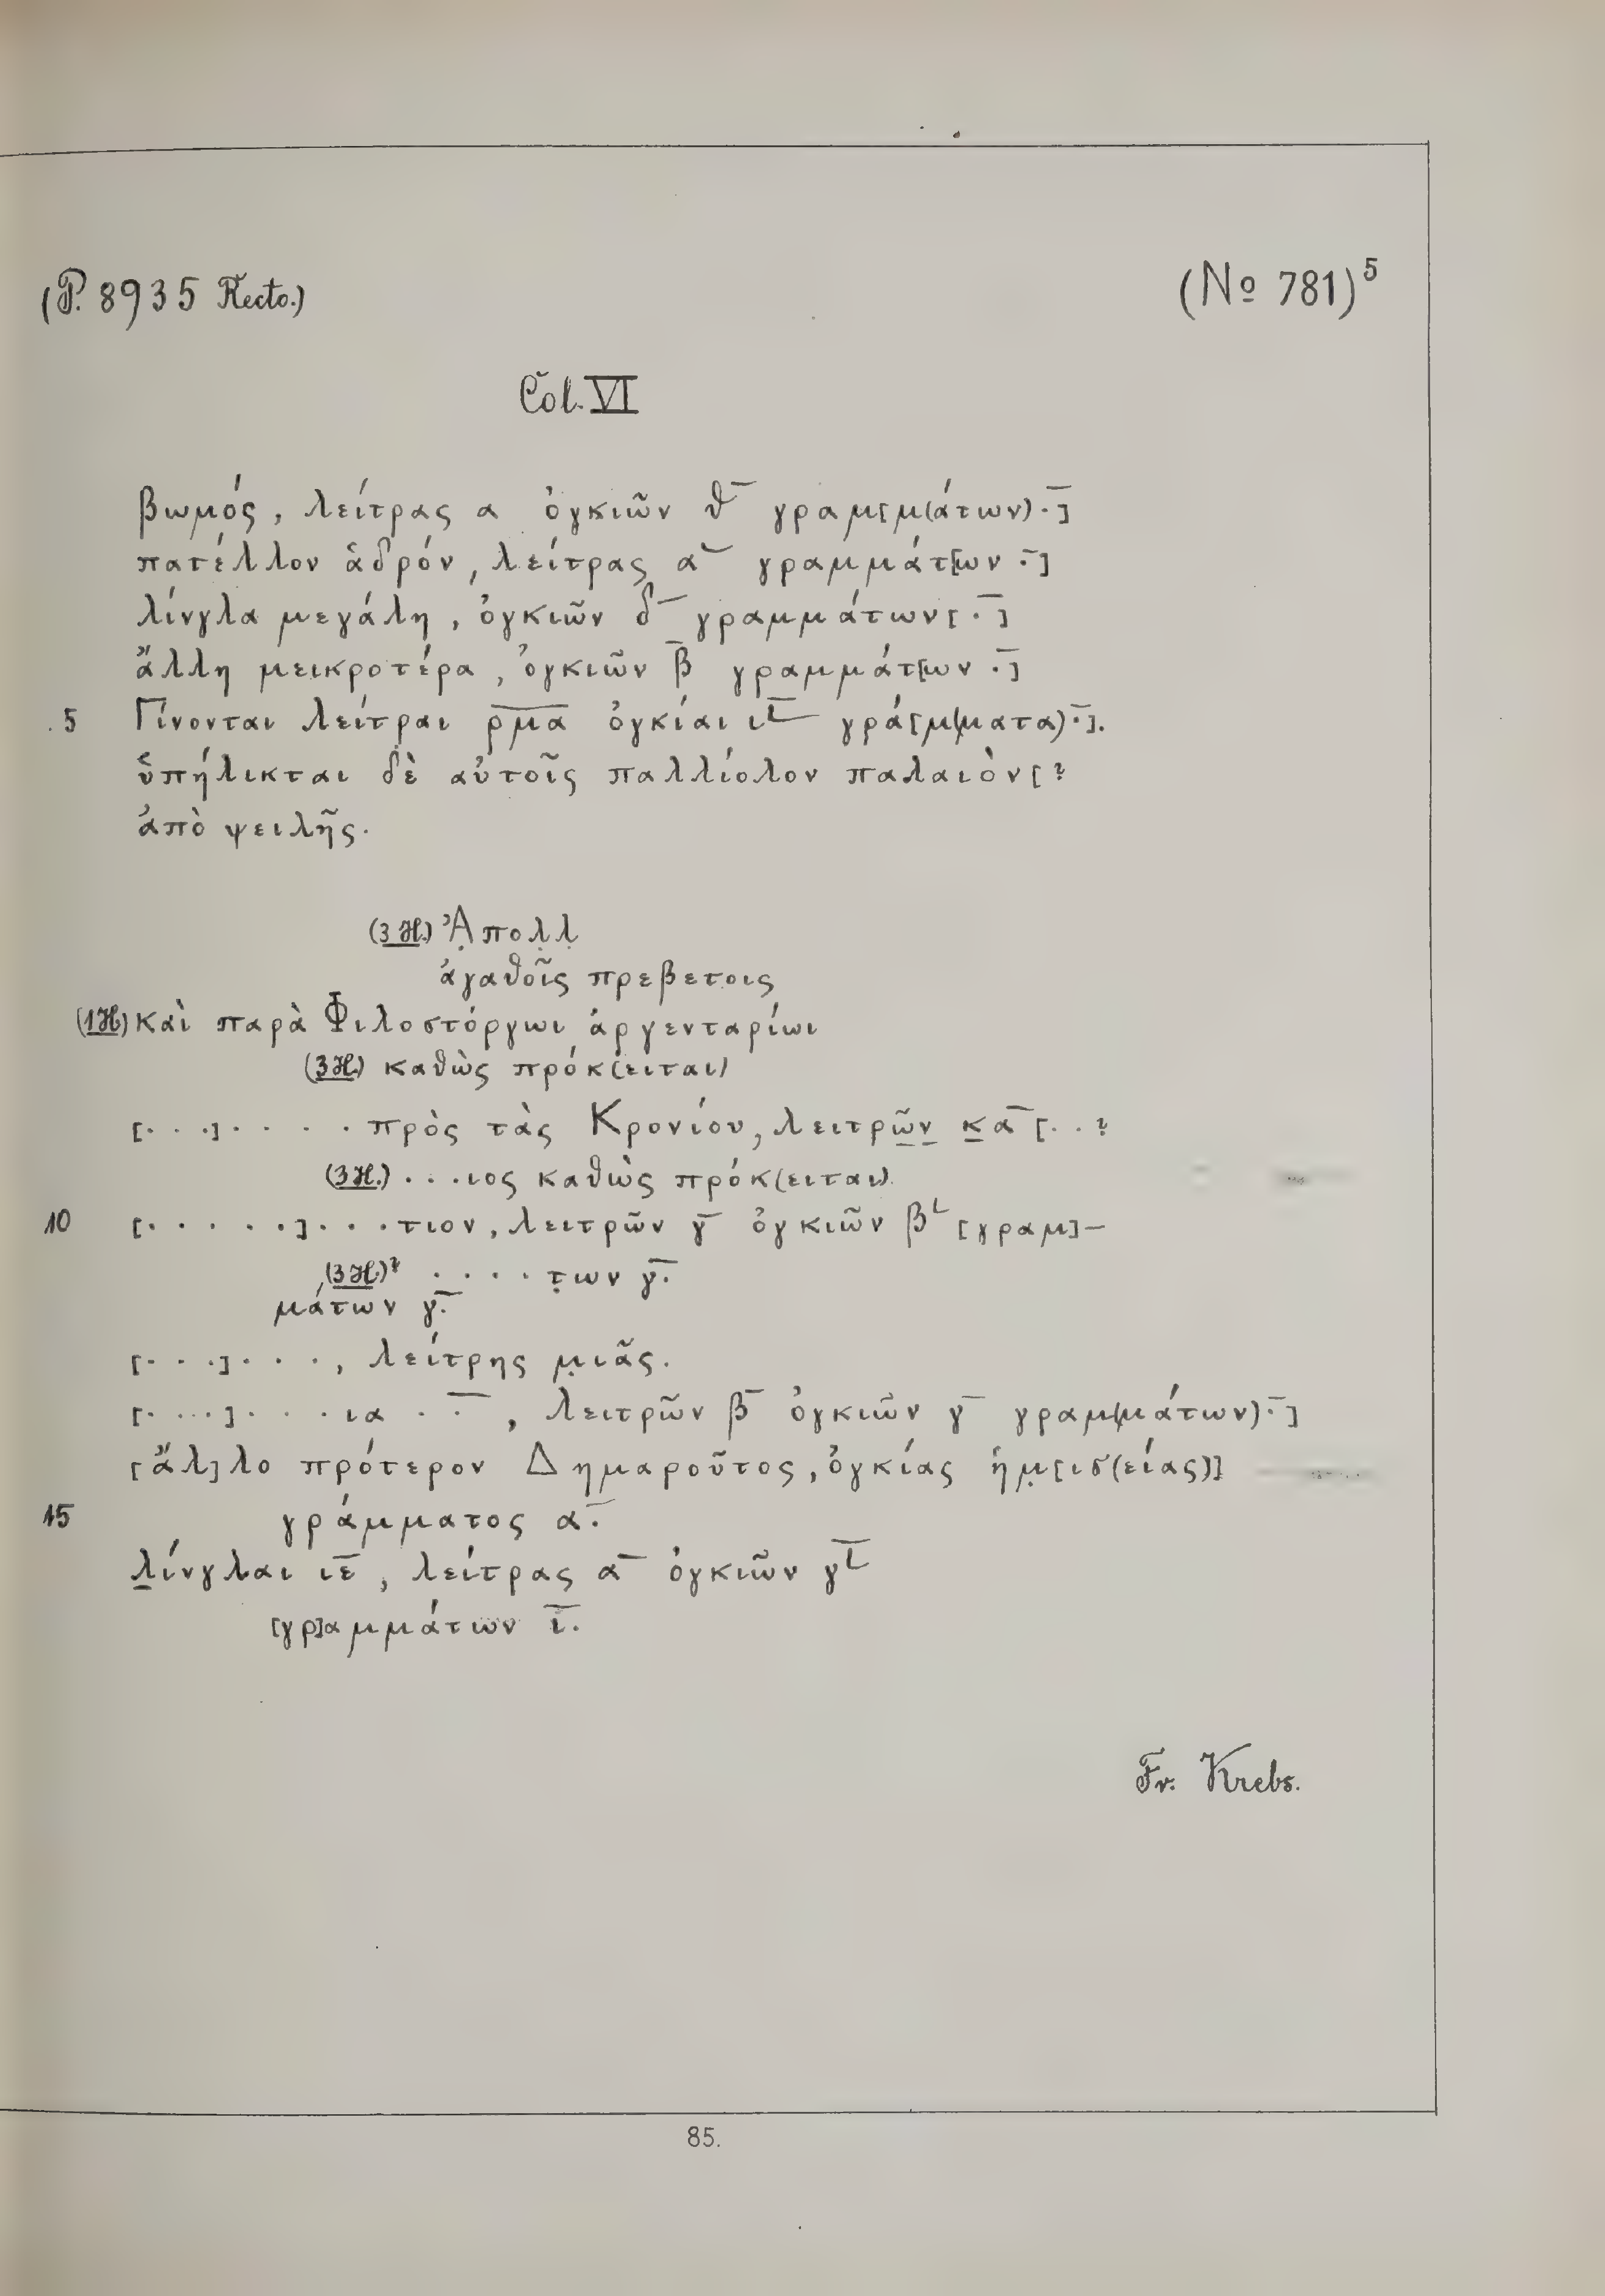 (P. 8935 Recto.)
(No 781)⁵
Col. VI
βωμός, λείτρας α ὀγκιῶν θ̅ γραμ[μ(άτων) ·̅]
πατέλλον ἁδρόν, λείτρας α̅ γραμμάτ[ων ·̅]
λίνγλα μεγάλη, ὀγκιῶν δ̅ γραμμάτων[ ·̅ ]
ἄλλη μεικροτέρα, ὀγκιῶν β̅ γραμμάτ[ων ·̅]
5 Γίνονται λείτραι ρ̅μ̅α̅ ὀγκίαι ιL̅ γρά[μ(ματα) ·̅].
ὑπήλικται δὲ αὐτοῖς παλλίολον παλαιὸν[?
ἀπὸ ψειλῆς.
(3 H.) Ἀ̣πολ̣λ̣
ἀγαθοῖς πρεβετοις
(1 H.) Καὶ παρὰ Φιλοστόργωι ἀργενταρίωι
(3 H.) καθὼς πρόκ(ειται)
[· · ·] · · · · πρὸς τὰς Κρονίου, λειτρῶ̲ν̲ κ̲α̅ [· · ?
(3 H.) · · · ιος καθὼς πρόκ(ειται).
10 [· · · · ·] · · · τιον, λειτρῶν γ̅ ὀγκιῶν βL [γραμ]-
(3 H.)? · · · · τ̣ων γ̅.
μάτων γ̅.
[· · ·] · · ·, λείτρης μ̣ιᾶς.
[· · · ·] · · · ια · ·̅, λειτρῶν β̅ ὀγκιῶν γ̅ γραμ(μάτων) ·̅]
[ἄλ]λο πρότερον Δημαροῦτος, ὀγκίας ἡμ̣[ισ(είας)]
15 γράμματος α̅.
λ̲ίνγλαι ιε̅, λείτρας α̅ ὀγκιῶν γL̅
[γρ]αμμάτων ι̅.
Fr. Krebs.
85.